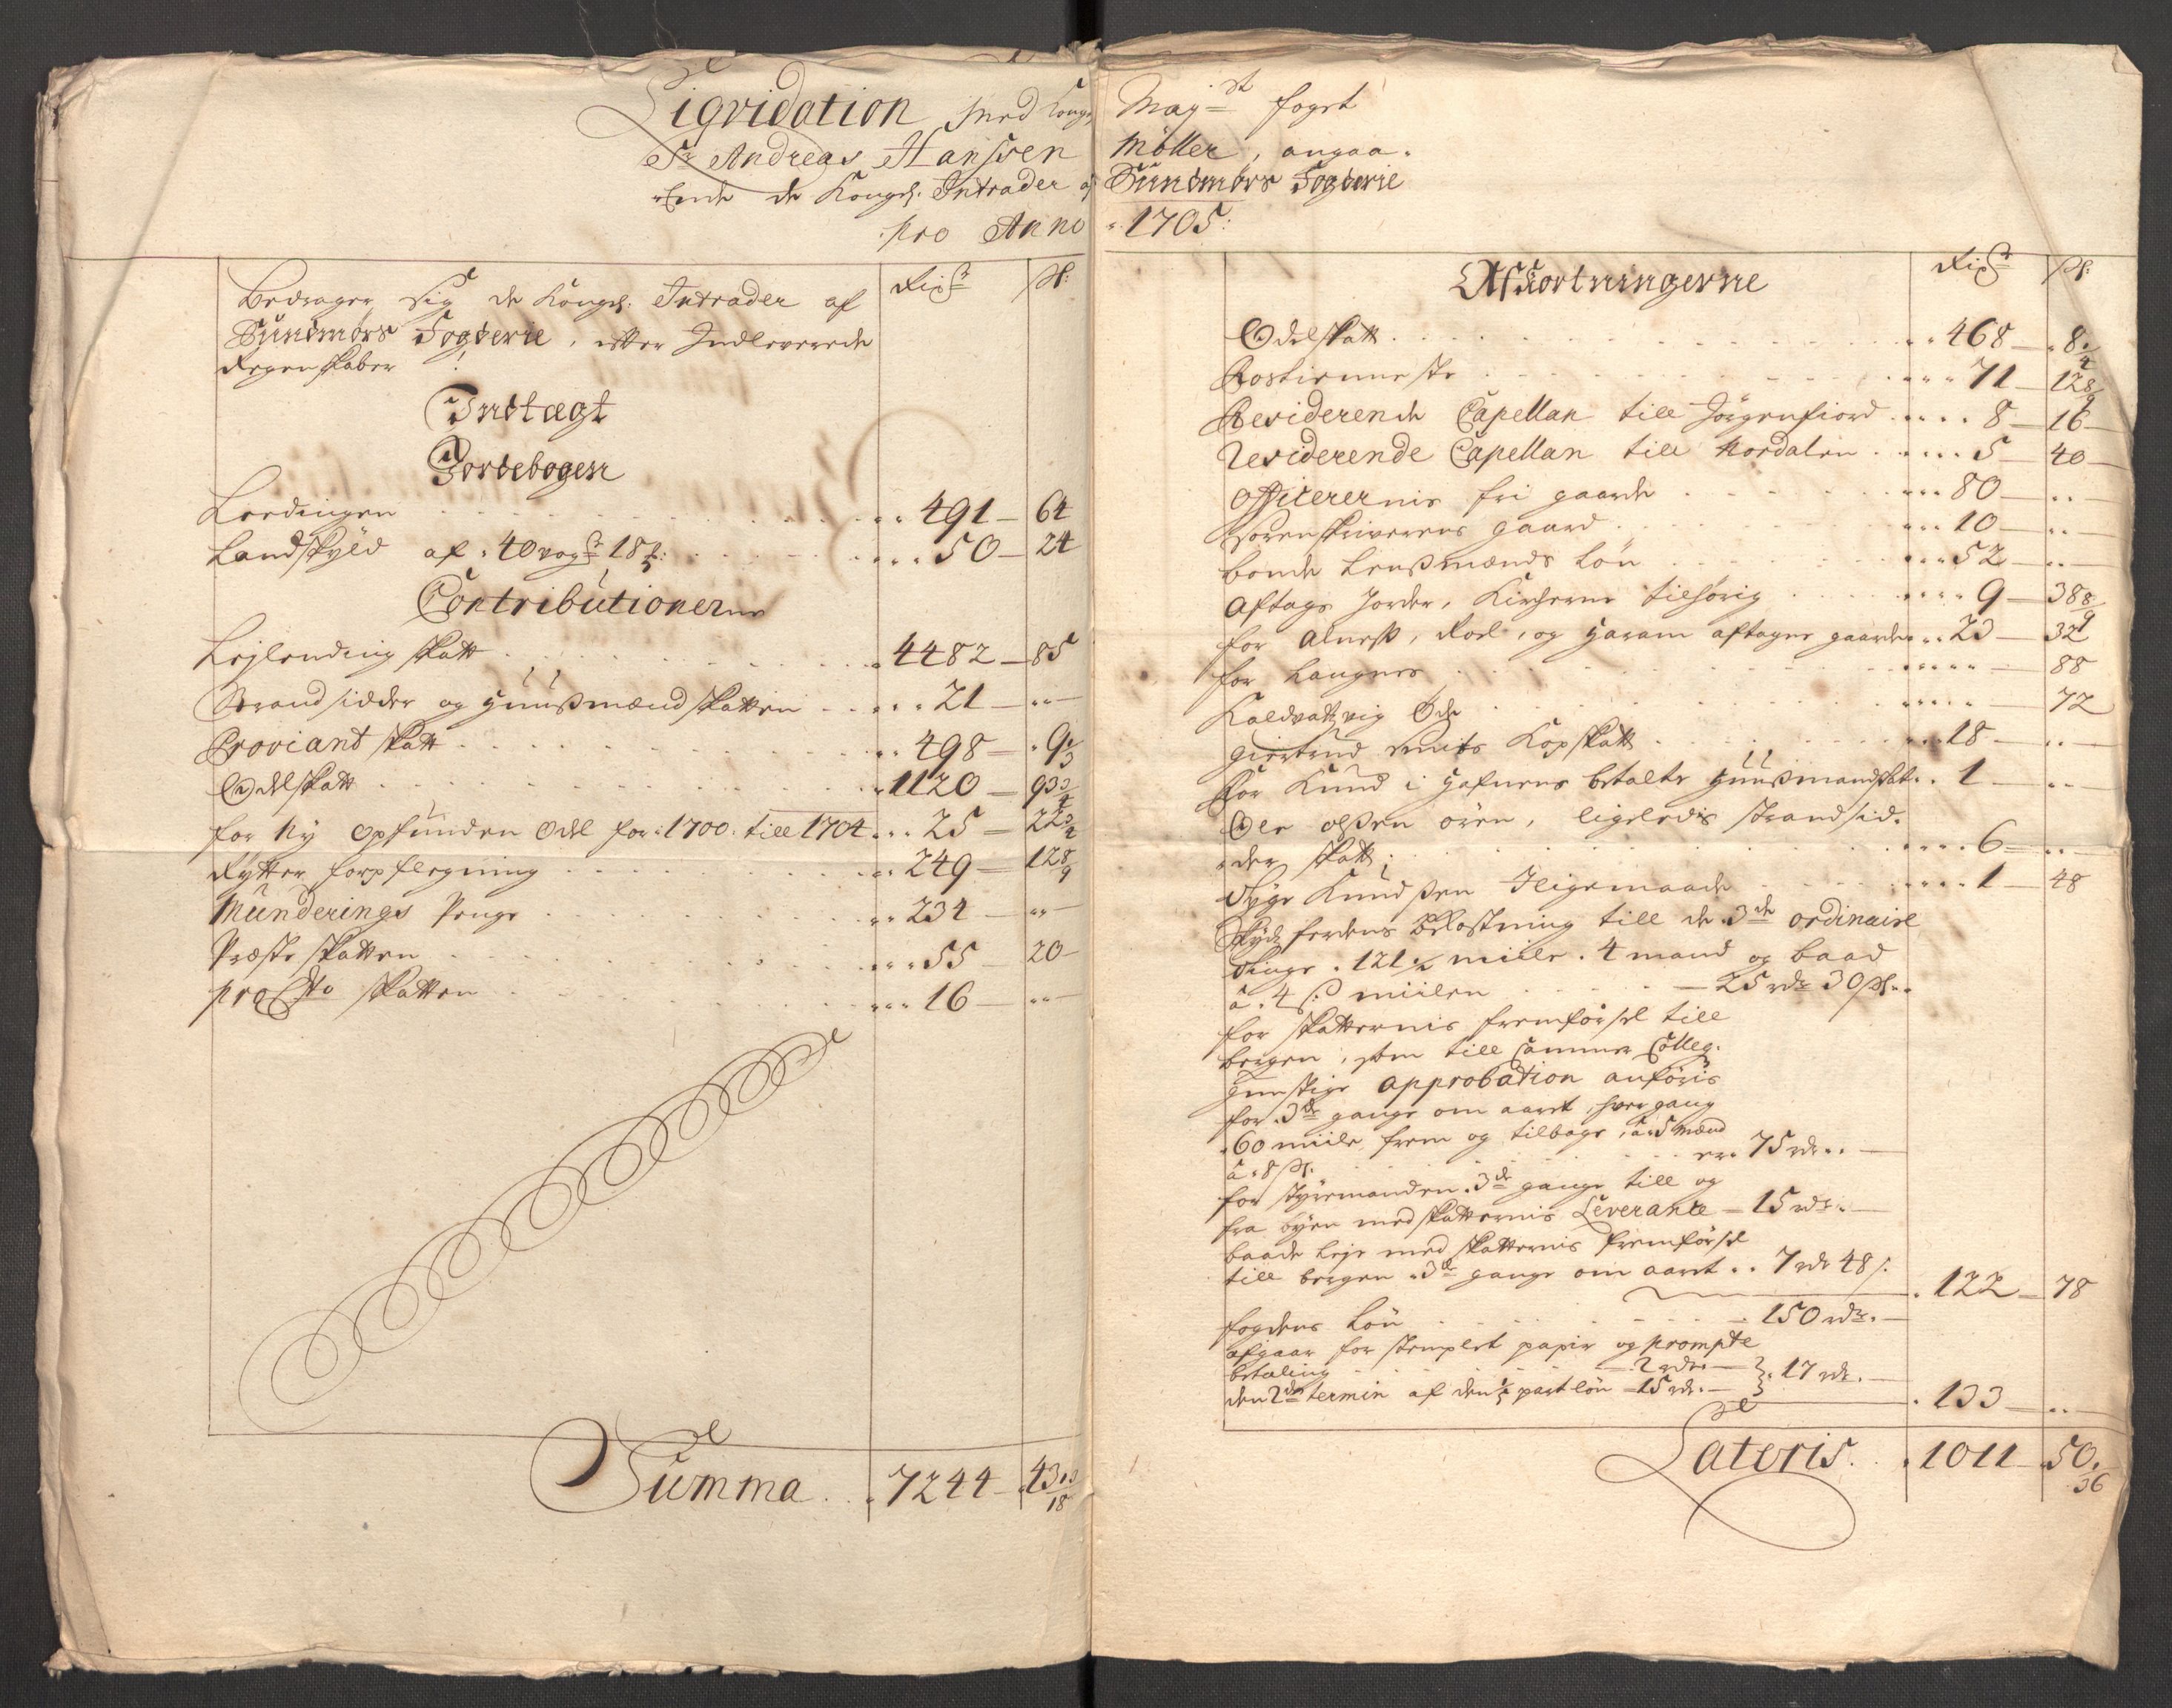 Liqvidation med Kongl. Maj.st fogt
Sr. Andreas Hanssen Möller, angaa-
ende de Kongl. Intrader af Sundmörs Fogderie
pro Anno 1705:
Bedrager sig de Kongl. Intrader af
Sundmörs Fogderie, etter Indleverede
Regenskaber!
Rixdr
ß:
Indtægt
Jordebogen
Leedingen 491 — 64
Landskyld af 40 vog 18 50 — 24
Contributionerne
Lejlending skatt 4482 — 85
Strandsidder og huusmænd skatten 21 — ..
Proviant skatt 498 — 9 1/3
Odelskatt 1120 — 93 3/4
for Ny opfunden Odel for 1700: till 1704 25 — 22 3/4
Rytter forpflegning 249 — 12 8/9
Munderings Penge 234 — ..
Præste skatten 55 — 20
pro Cto skatten 16 — ..
Summa 7244 — 43 13/18
Afkortningerne
Rixdr
ß:
Odelskatt 468 — 8 1/4
Rostienneste 71 — 12 8/9
Residerende Capellan till Jörgenfiord 8 — 16
Residerende Capellan till Nordalen 5 — 40
Officerernis fri gaarde 80 — ..
Sorenskriverens gaard 10 — ..
bonde Lensmænds Lön 52 — ..
Aftags Jorder, Kircherne tilhörig 9 — 38 8/9
for Alness, Roel, og Haram aftagne gaarde 23 — 32
for Langnes — 88
Kaldvattvig Öde — 72
Giertrud Smits Kopskatt 18 — ..
For Knud i Hafnens betalte huusmandskat 1 — ..
Ole olsen ören, ligeledis strandsid-
der skatt 6 — ..
Knudsen Iligemaade 1 — 48
Skydsferdens Bekostning till de 3de ordinaire
Tinge. 121 1/2 miile. 4 mand og baad
a 4 ß. miilen — 25 rdr 30 ß
for skatternis fremförsel till
bergen, som till Cammer Colleg:
gunstige approbation anföris
for 3de gange om aaret, hver gang
60 miile frem og tilbage, a 5 mænd
a 8 ß. er 75 rdr
for styremanden 3de gange till og
fra byen med skatternis Leverance — 15 rdr
baade leje med skatternis fremförsel
till bergen 3de gange om aaret 7 rdr 48 ß.
122 — 78
fogdens Lön 150 rdr
afgaar for stemplet papir og prompte
betaling — 2 rdr —
den 2den termin af den 1/5 part lön — 15 rdr — } 17 rdr.
133 — ..
Lateris 1011 — 50 1/36